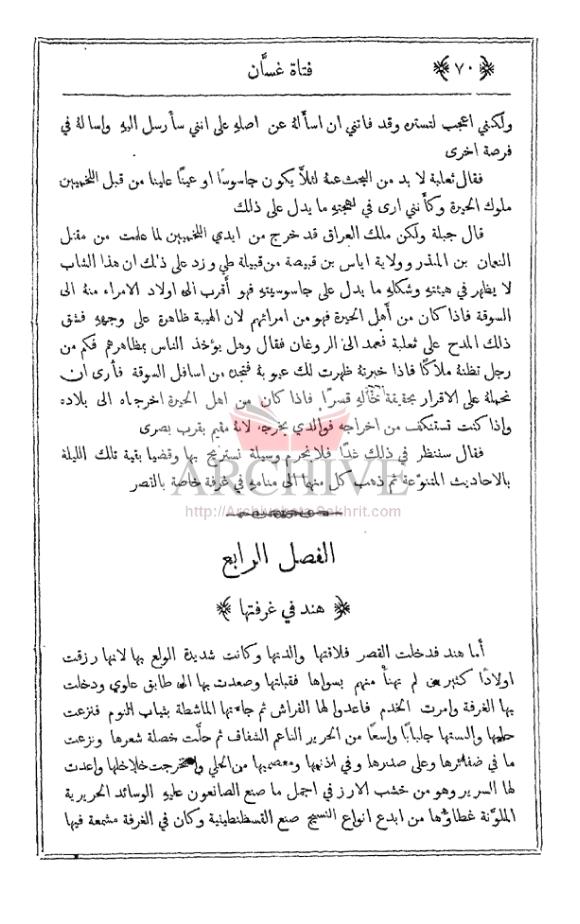 ﴿ ٧٠ ﴾ فتاة غسَّان
ولكنني اعجب لتستره وقد فاتني ان اسأله عن اصله على انني سأرسل اليه واسأله في
فرصة اخرى
فقال ثعلبة لا بد من البحث عنه لئلَّا يكون جاسوسًا او عينًا علينا من قبل اللخميين
ملوك الحيرة وكأنني ارى في لهجته ما يدل على ذلك
قال جبلة ولكن ملك العراق قد خرج من ايدي اللخميين لما علمت من مقتل
النعمان بن المنذر وولاية اياس بن قبيصة من قبيلة طي وزد على ذلك ان هذا الشاب
لا يظهر في هيئته وشكله ما يدل على جاسوسيته فهو أقرب الى اولاد الامراء منه الى
السوقة فاذا كان من أهل الحيرة فهو من امرائهم لان الهيبة ظاهرة على وجهه فشق
ذلك المدح على ثعلبة فعمد الى الروغان فقال وهل يؤخذ الناس بمظاهرهم فكم من
رجل تظنه ملاكًا فاذا خبرته ظهرت لك عيوبه فتجده من اسافل السوقة فأرى ان
نحمله على الاقرار بحقيقة حاله قسرًا فاذا كان من اهل الحيرة اخرجناه الى بلاده
وإذا كنت تستنكف من اخراجه فوالدي يخرجه لانه مقيم بقرب بصرى
فقال سننظر في ذلك غدًا فلا نحرم وسيلة نستريح بها وقضيا بقية تلك الليلة
بالاحاديث المتنوّعة ثم ذهب كل منهما الى منامه في غرفة خاصة بالقصر
ARCHIVE
http://Archivebeta.Sakhrit.com
الفصل الرابع
﴿ هند في غرفتها ﴾
أما هند فدخلت القصر فلاقتها والدتها وكانت شديدة الولع بها لانها رزقت
اولادًا كثيرين لم تهنأ منهم بسواها فقبلتها وصعدت بها الى طابق علوي ودخلت
بها الغرفة وامرت الخدم فاعدوا لها الفراش ثم جاءتها الماشطة بثياب النوم فنزعت
حليها والبستها جلبابًا واسعًا من الحرير الناعم الشفاف ثم حلَّت خصلة شعرها ونزعت
ما في ضفائرها وعلى صدرها وفي اذنيها ومعصميها من الحلي واستخرجت خلاخلها واعدت
لها السرير وهو من خشب الارز في اجمل ما صنع الصانعون عليه الوسائد الحريرية
الملوّنة غطاؤها من ابدع انواع النسيج صنع القسطنطينية وكان في الغرفة مشمعة فيها